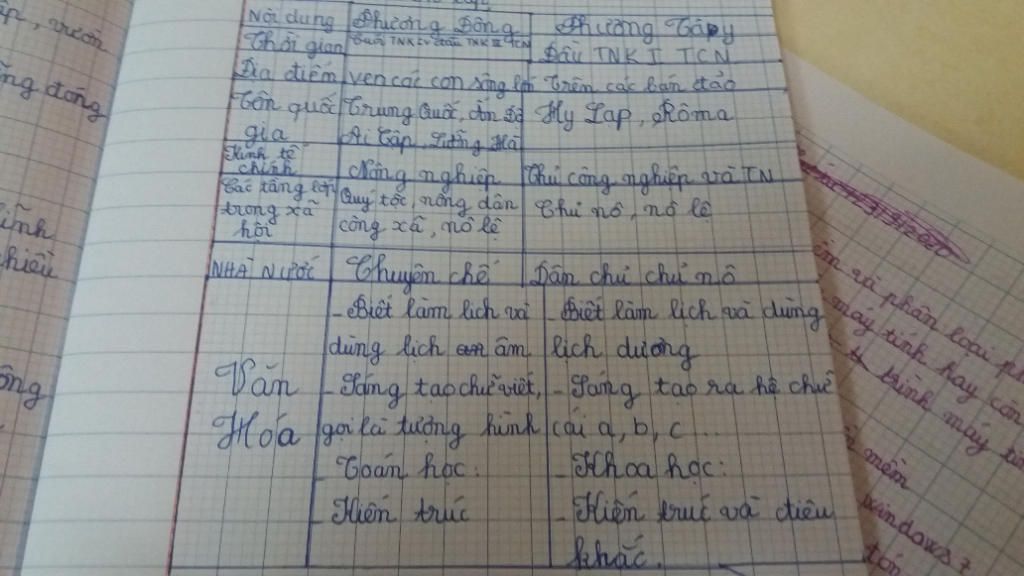 Nội dung Phương Đông Phương Tây
Thời gian Cuối TNK IV đầu TNK III TCN Đầu TNK I TCN
Địa điểm ven các con sông lớn Trên các bán đảo
Tên quốc Trung Quốc, Ấn Độ Hy Lạp, Rôma
gia Ai Cập, Lưỡng Hà
Kinh tế
chính Nông nghiệp Thủ công nghiệp và TN
Các tầng lớp
trong xã Quý tộc, nông dân Chủ nô, nô lệ
hội công xã, nô lệ
NHÀ NƯỚC Chuyên chế Dân chủ chủ nô
- Biết làm lịch và - Biết làm lịch và dùng
dùng lịch âm lịch dương
Văn - Sáng tạo chữ viết, - Sáng tạo ra hệ chữ
Hóa gọi là tượng hình cái a, b, c ...
- Toán học: - Khoa học:
- Kiến trúc - Kiến trúc và điêu
khắc.
vườn
đồng
hiều
ông
và phân loại
máy tính hay còn
trình máy
mềm
windows 7